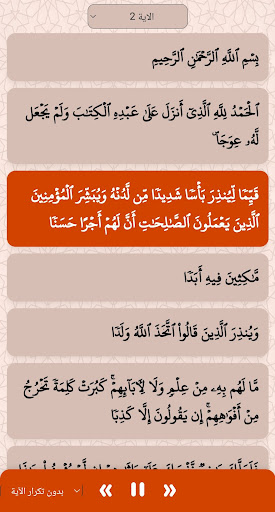 الآية 2
بِسْمِ اللَّهِ الرَّحْمَٰنِ الرَّحِيمِ
الْحَمْدُ لِلَّهِ الَّذِي أَنزَلَ عَلَىٰ عَبْدِهِ الْكِتَٰبَ وَلَمْ يَجْعَل
لَّهُۥ عِوَجَا ۜ
قَيِّمًا لِّيُنذِرَ بَأْسًا شَدِيدًا مِّن لَّدُنْهُ وَيُبَشِّرَ الْمُؤْمِنِينَ
الَّذِينَ يَعْمَلُونَ الصَّٰلِحَٰتِ أَنَّ لَهُمْ أَجْرًا حَسَنًا
مَّٰكِثِينَ فِيهِ أَبَدًا
وَيُنذِرَ الَّذِينَ قَالُوا۟ اتَّخَذَ اللَّهُ وَلَدًا
مَّا لَهُم بِهِۦ مِنْ عِلْمٍ وَلَا لِءَابَآئِهِمْ ۚ كَبُرَتْ كَلِمَةً تَخْرُجُ
مِنْ أَفْوَٰهِهِمْ ۚ إِن يَقُولُونَ إِلَّا كَذِبًا
بدون تكرار الآية